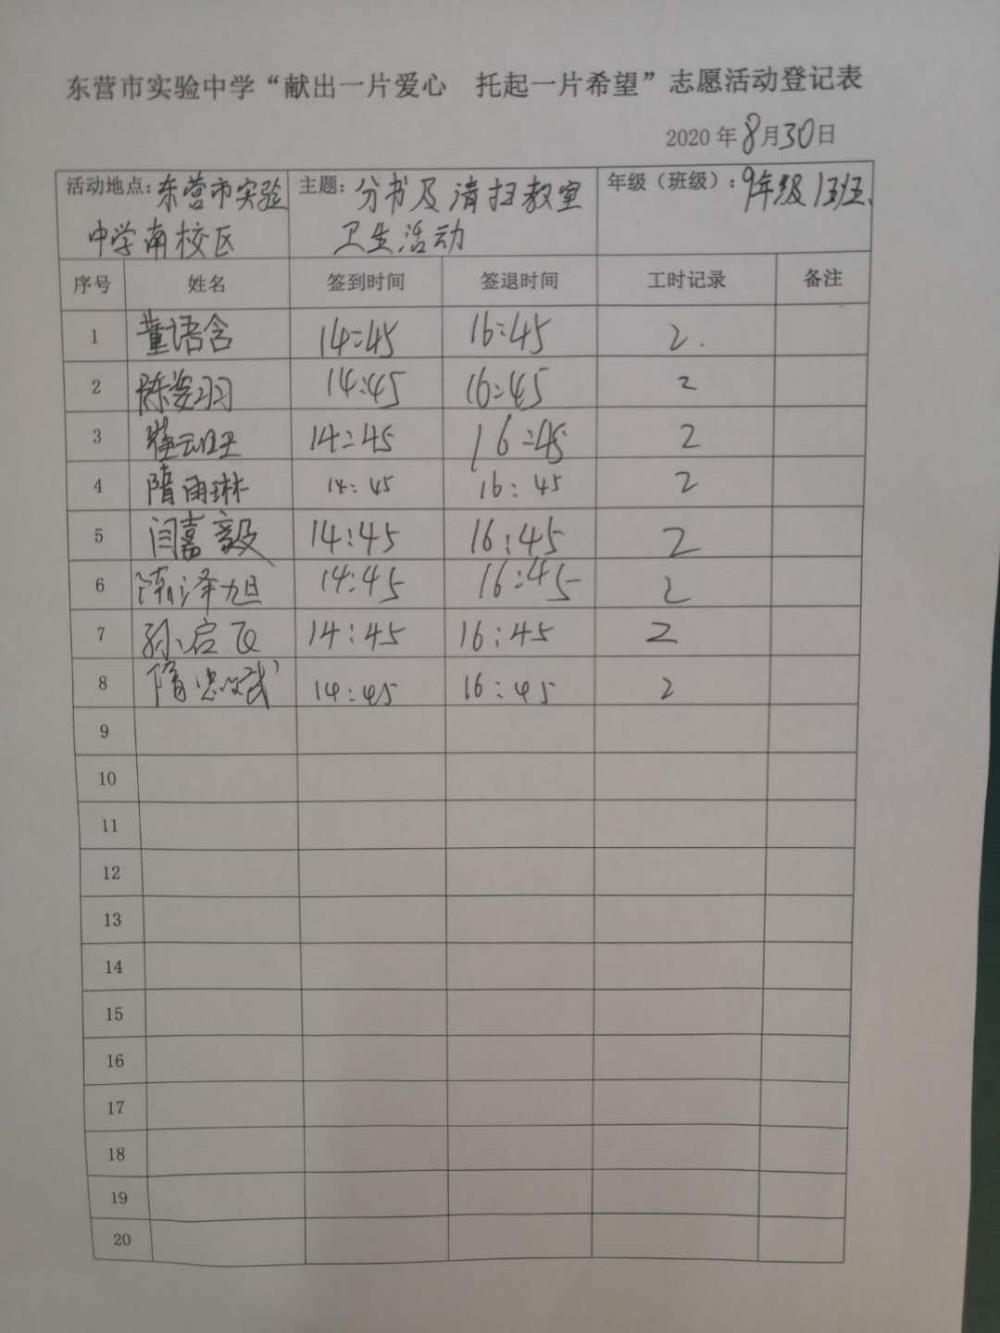 东营市实验中学“献出一片爱心 托起一片希望”志愿活动登记表
2020年8月30日
活动地点：东营市实验 主题：分书及清扫教室 年级（班级）：9年级13班.
中学南校区 卫生活动
序号 姓名 签到时间 签退时间 工时记录 备注
1 董语含 14:45 16:45 2.
2 陈姿羽 14:45 16:45 2
3 14:45 16:45 2
4 隋雨琳 14:45 16:45 2
5 闫嘉毅 14:45 16:45 2
6 陈泽旭 14:45 16:45 2
7 孙启飞 14:45 16:45 2
8 隋 14:45 16:45 2
9
10
11
12
13
14
15
16
17
18
19
20